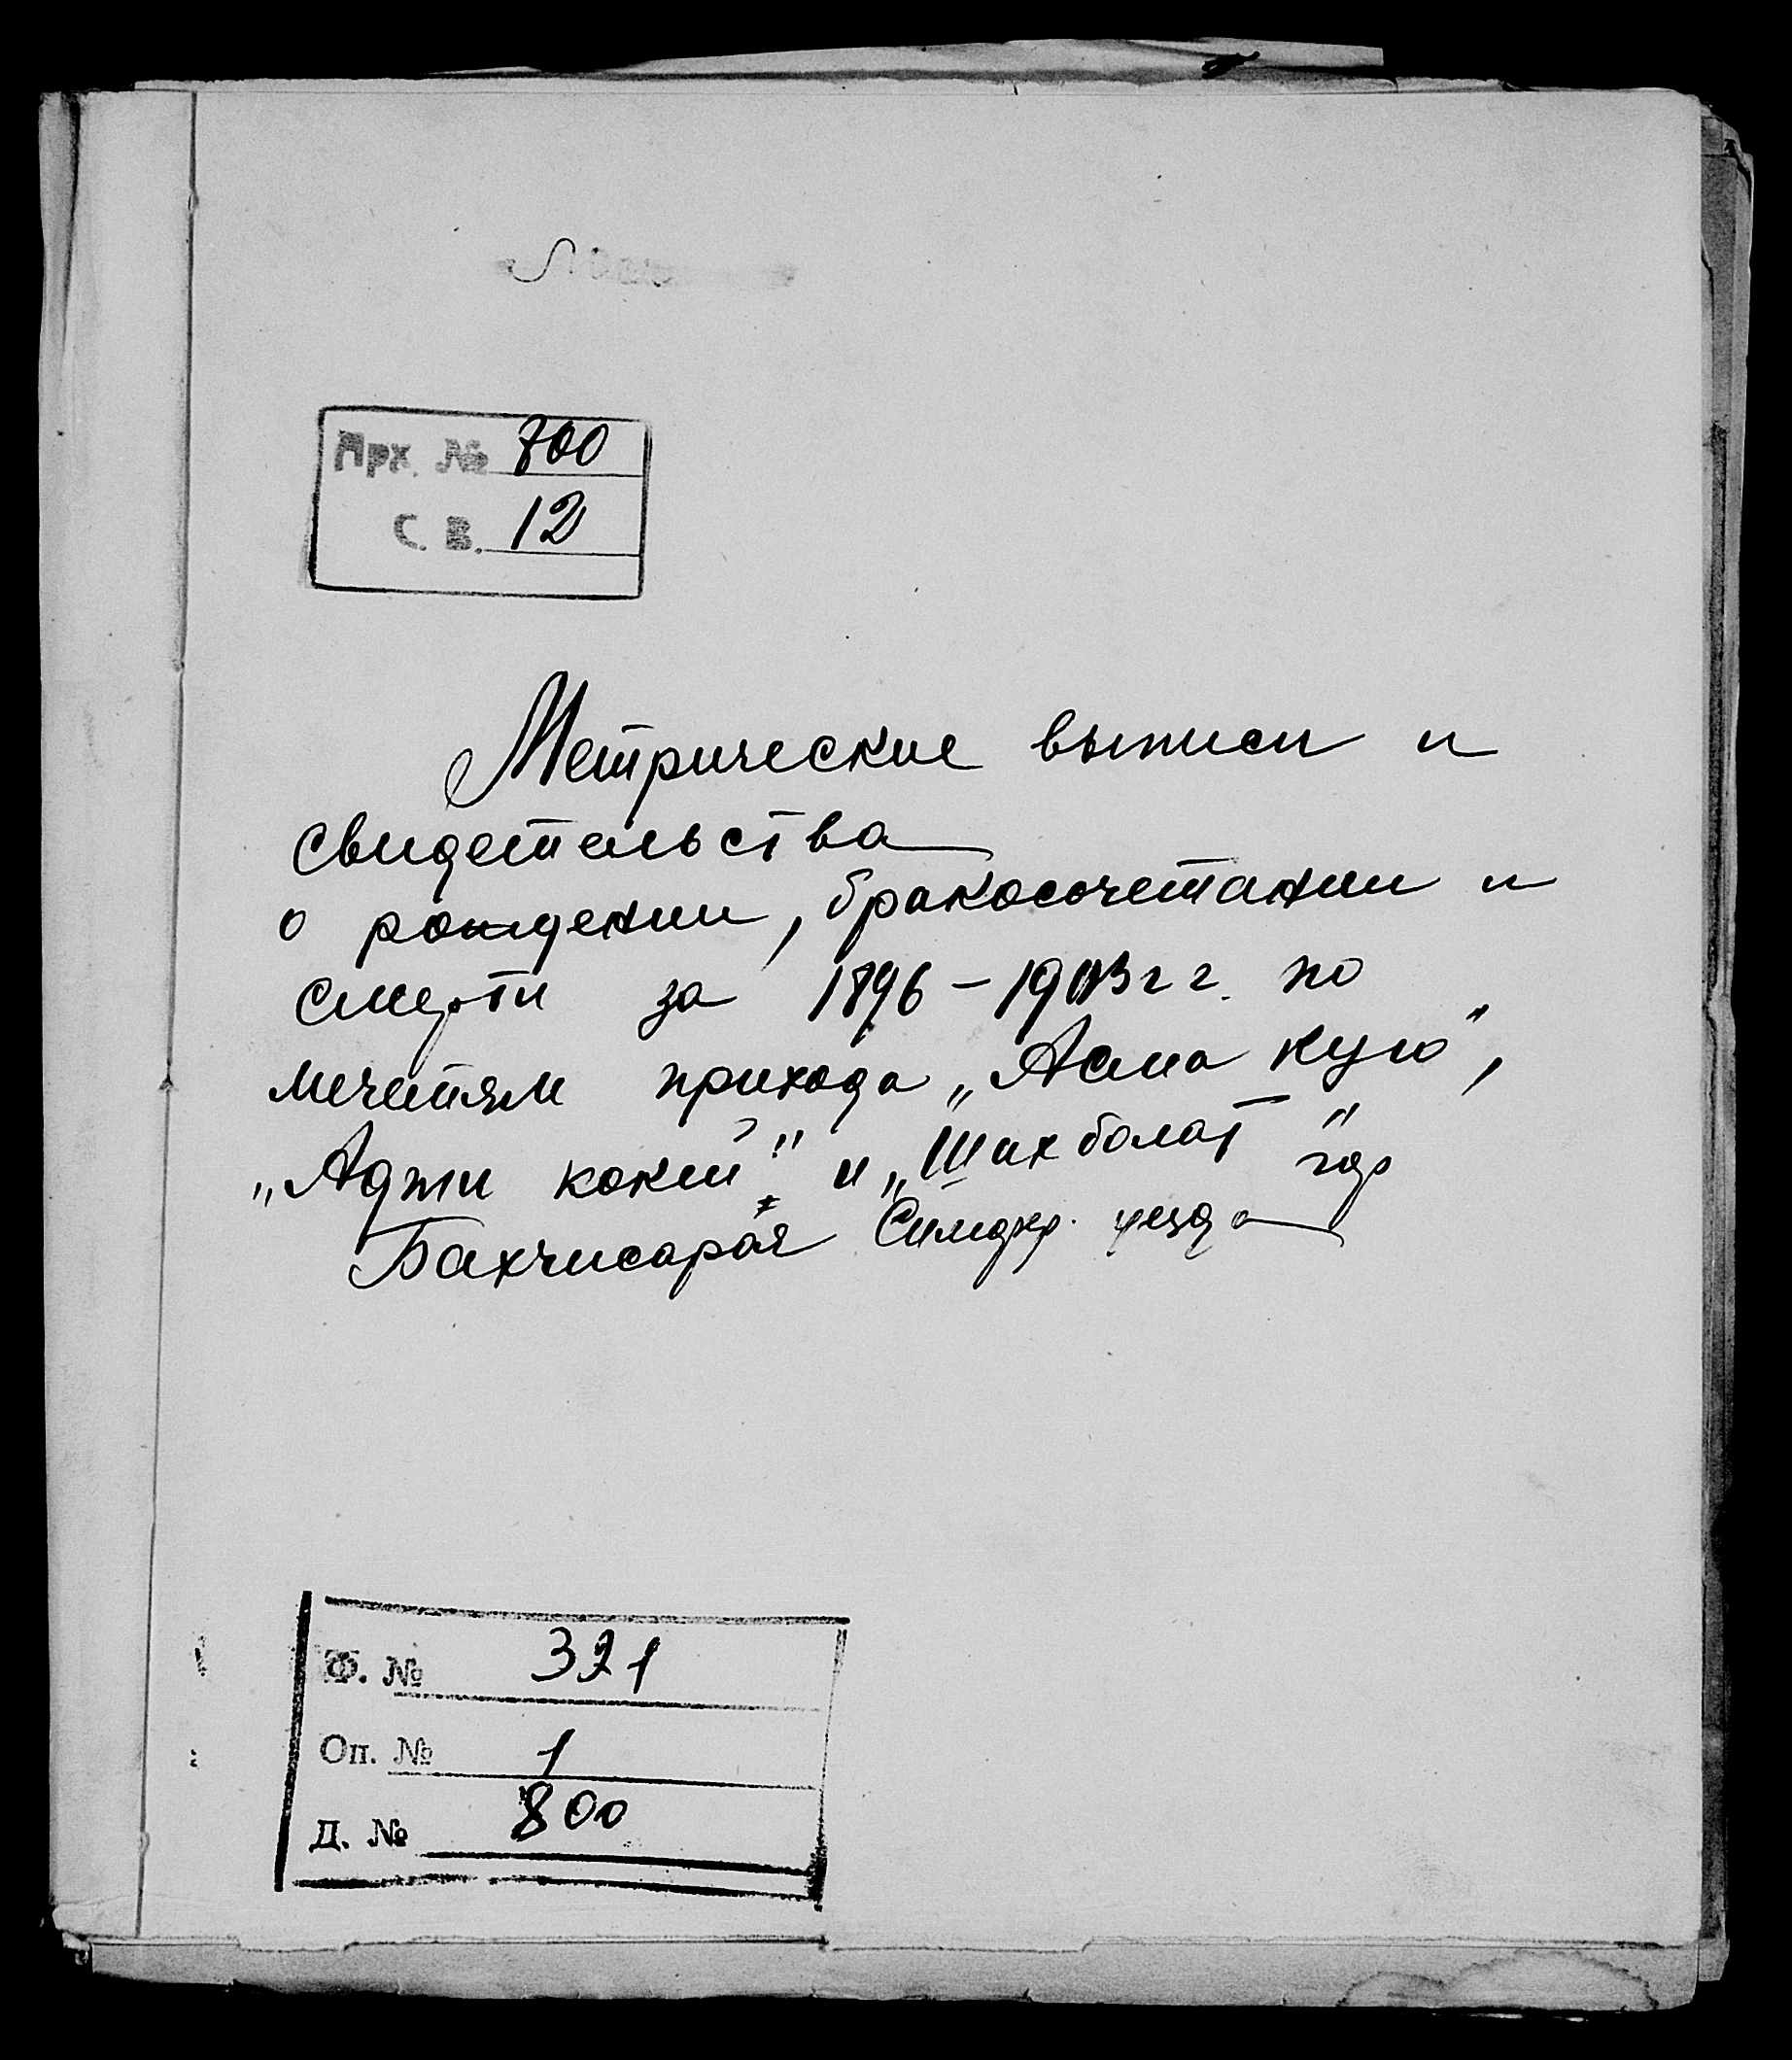 Арх. № 800
С. В. 12
Метрические выписи и
свидетельства
о рождении, бракосочетании и
смерти за 1896 – 1903 г г. по
мечетям прихода „Асма кую",
„Аджи кокей" и „Шах болат" гор
Бахчисарая Симфер. уезда
Ф. № 321
Оп. № 1
Д. № 800